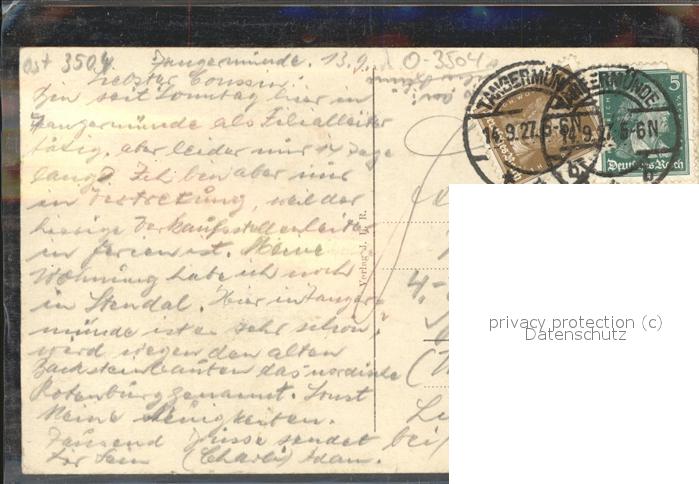 Ost 3504 Tangermünde. 13.9. O-3504
Liebster Cousin!
Bin seit Sonntag hier in
Tangermünde als Filialleiter
tätig, aber leider nur 14 Tage
lang. Ich bin aber nur
in Vertretung, weil der
hiesige Verkaufsstellenleiter
in Ferien ist. Meine
Wohnung habe ich noch
in Stendal. Hier in Tanger-
münde ist es sehr schön,
wird wegen den alten
Backsteinbauten das nordische
Rotenburg genannt. Sonst
keine Neuigkeiten.
Tausend Grüsse sendet
Dir Dein (Charly) Adam.
Verlag J. R.
TANGERMÜNDE
14.9.27.5-6N
TANGERMÜNDE
14.9.27.5-6N
5
Deutsches Reich
privacy protection (c)
Datenschutz
bei